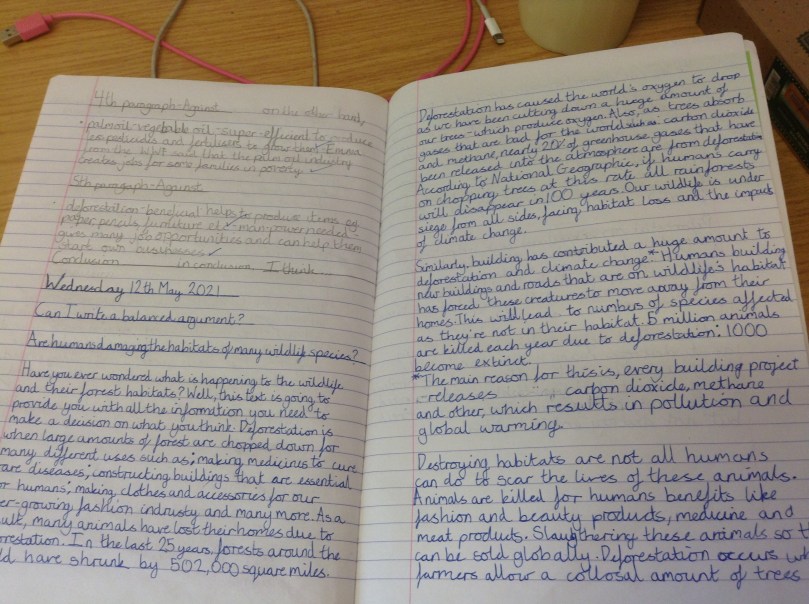 4th paragraph-Against on the other hand,
• palmoil-vegetable oil-super-efficient to produce
no pesticides and fertilisers to grow them. Emma
from the WWF said that the palm oil industry
creates jobs for some families in poverty.
5th paragraph-Against
• deforestation-beneficial helps to produce items eg
paper pencils furniture etc-man power needed-
gives many job opportunities and can help them
start own businesses
Conclusion in conclusion, I think
Wednesday 12th May 2021
Can I write a balanced argument?
Are humans damaging the habitats of many wildlife species?
Have you ever wondered what is happening to the wildlife
and their forest habitats? Well, this text is going to
provide you with all the information you need to
make a decision on what you think. Deforestation is
when large amounts of forest are chopped down for
many different uses such as; making medicines to cure
rare diseases; constructing buildings that are essential
for humans; making clothes and accessories for our
er-growing fashion industry and many more. As a
ult, many animals have lost their homes due to
orestation. In the last 25 years, forests around the
ld have shrunk by 502,000 square miles.
Deforestation has caused the world's oxygen to drop
as we have been cutting down a huge amount of
our trees-which produce oxygen. Also, as trees absorb
gases that are bad for the world such as: carbon dioxide
and methane, nearly 20% of greenhouse gases that have
been released into the atmosphere are from deforestation
According to National Geographic, if humans carry
on chopping trees at this rate all rainforests
will disappear in 100 years. Our wildlife is under
siege from all sides, facing habitat loss and the impacts
of climate change.
Similarly, building has contributed a huge amount to
deforestation and climate change.* Humans building
new buildings and roads that are on wildlife's habitat
has forced these creatures to move away from their
homes. This will lead to numbus of species affected
as they're not in their habitat. 5 million animals
are killed each year due to deforestation: 1000
become extinct.
*The main reason for this is, every building project
releases carbon dioxide, methane
and other, which results in pollution and
global warming.
Destroying habitats are not all humans
can do to scar the lives of these animals.
Animals are killed for humans benefits like
fashion and beauty products, medicine and
meat products. Slaughtering these animals so t
can be sold globally. Deforestation occurs wh
farmers allow a collosal amount of trees